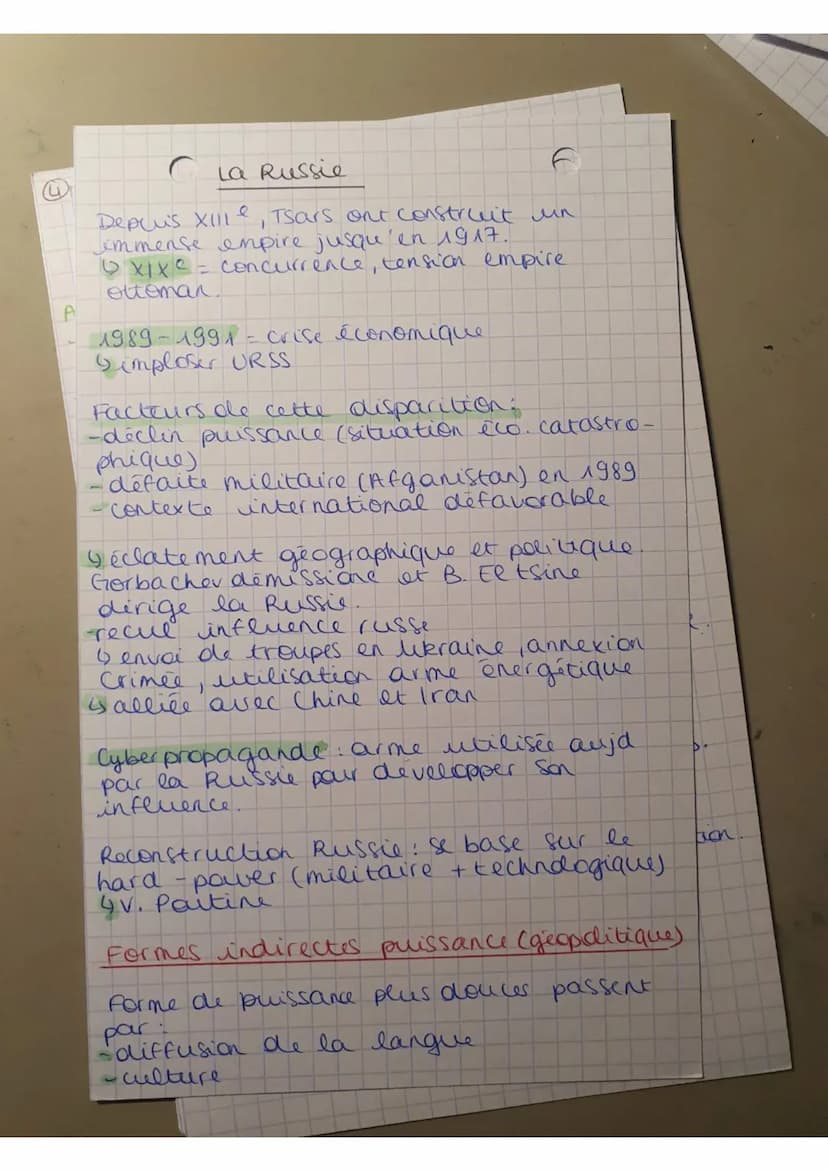 La Russie
Depuis XIIIe, Tsars ont construit un
immense empire jusqu'en 1917.
↳ XIXe = concurrence, tension empire
ottoman.
1989-1991 = crise économique
↳ imploser URSS
Facteurs de cette disparition :
-déclin puissance (situation éco. catastro-
phique)
-défaite militaire (Afganistan) en 1989
-contexte international défavorable
↳ éclatement géographique et politique.
Gorbachev démissione et B. Eltsine
dirige la Russie.
-recul influence russe
↳ envoi de troupes en Ukraine, annexion
Crimée, utilisation arme énergétique
↳ alliée avec Chine et Iran
Cyberpropagande : arme utilisée aujd
par la Russie pour développer son
influence.
Reconstruction Russie : se base sur le
hard-power (militaire + technologique)
↳ V. Poutine
Formes indirectes puissance (géopolitique)
Forme de puissance plus douces passent
par :
-diffusion de la langue
-culture
4
A
-
r.
p.
tion.